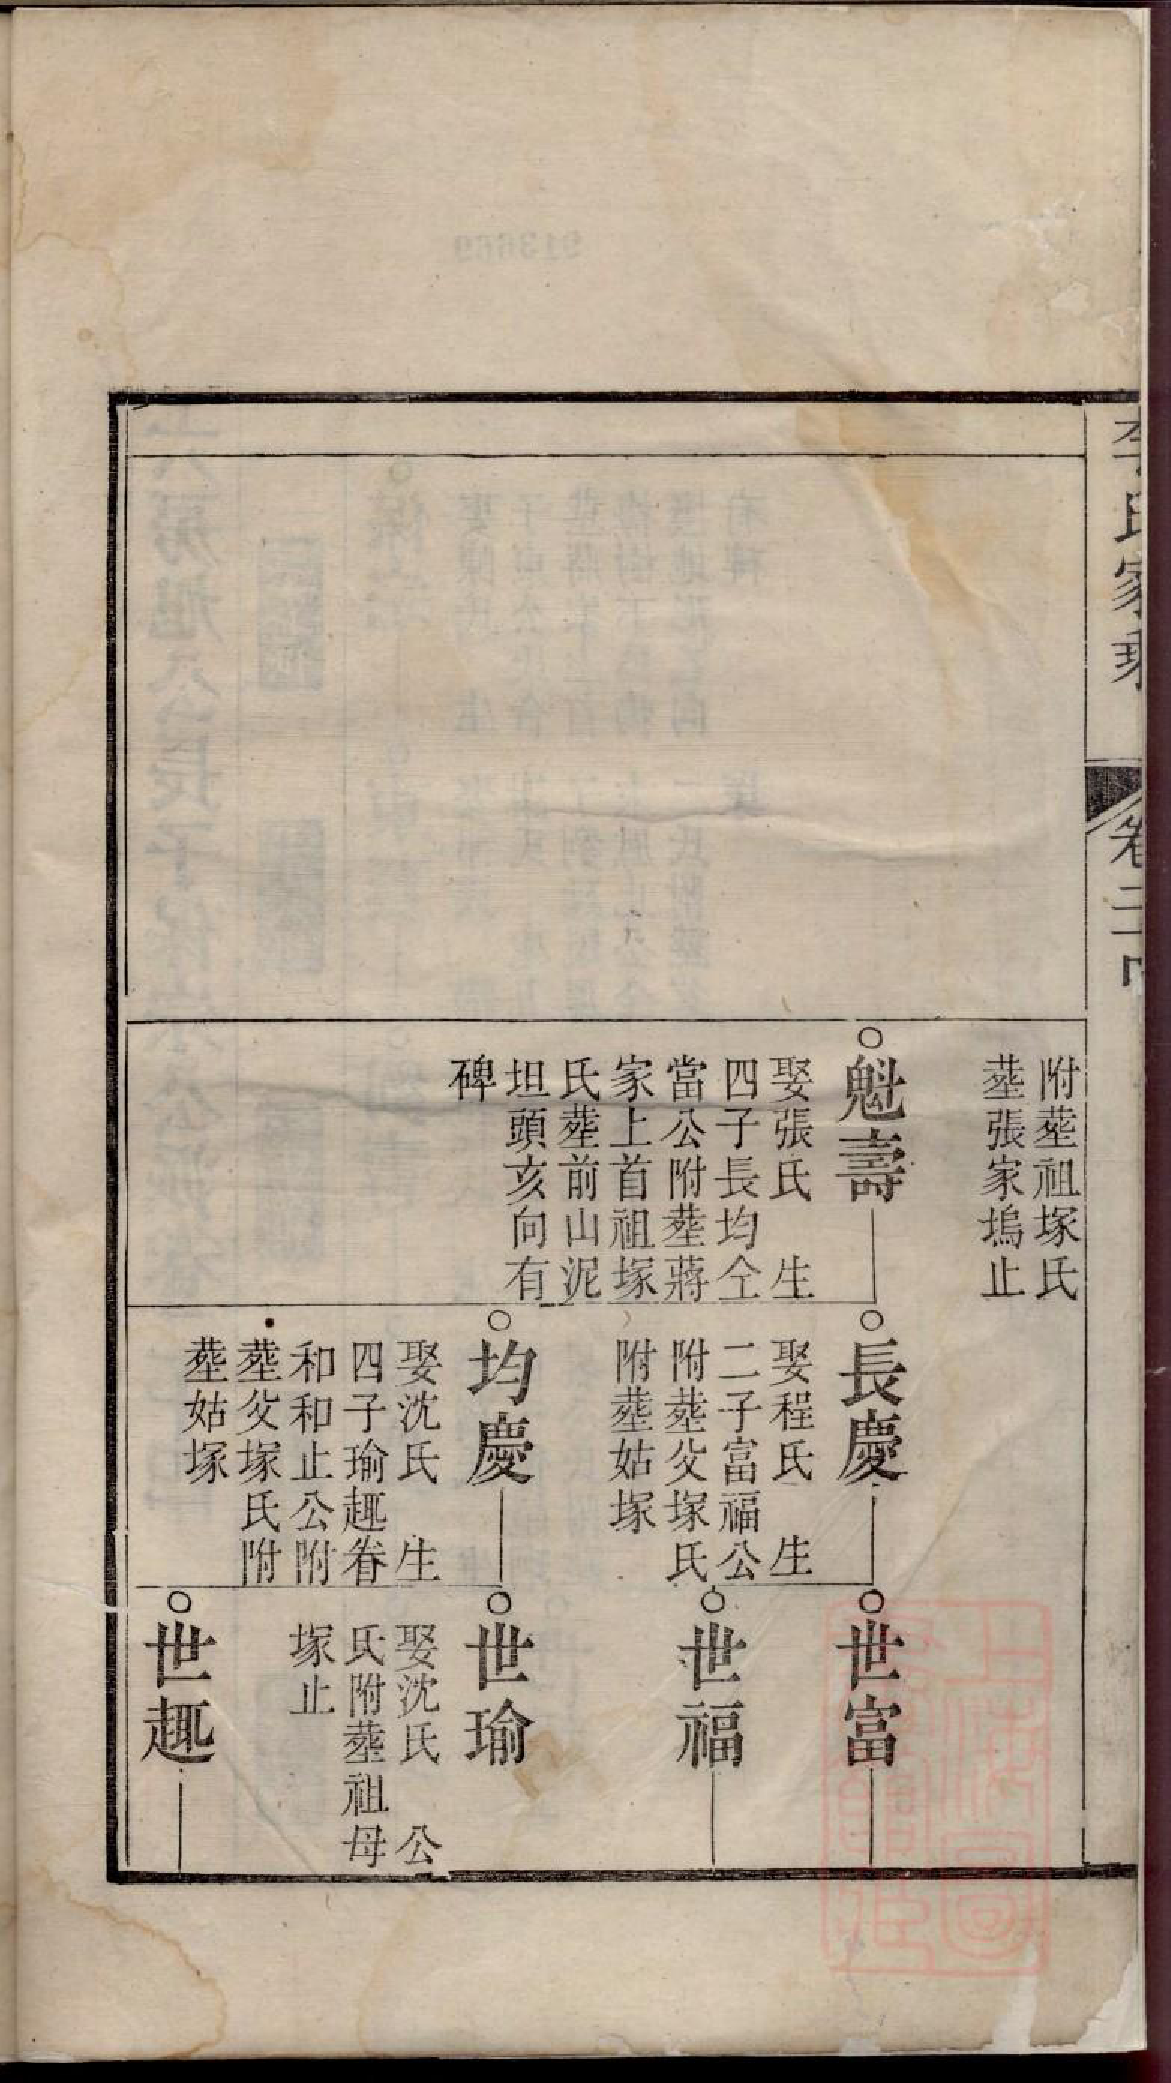 李氏家乘
卷二十四
附塟祖塚氏
塟張家塢止
魁壽
娶張氏 生
四子長均仝
當公附塟蔣
家上首祖塚
氏塟前山泥
坦頭亥向有
碑
長慶
娶程氏 生
二子富福公
附塟父塚氏
附塟姑塚
均慶
娶沈氏 生
四子瑜趣眷
和和止公附
塟父塚氏附
塟姑塚
世富
世福
世瑜
娶沈氏 公
氏附塟祖母
塚止
世趣